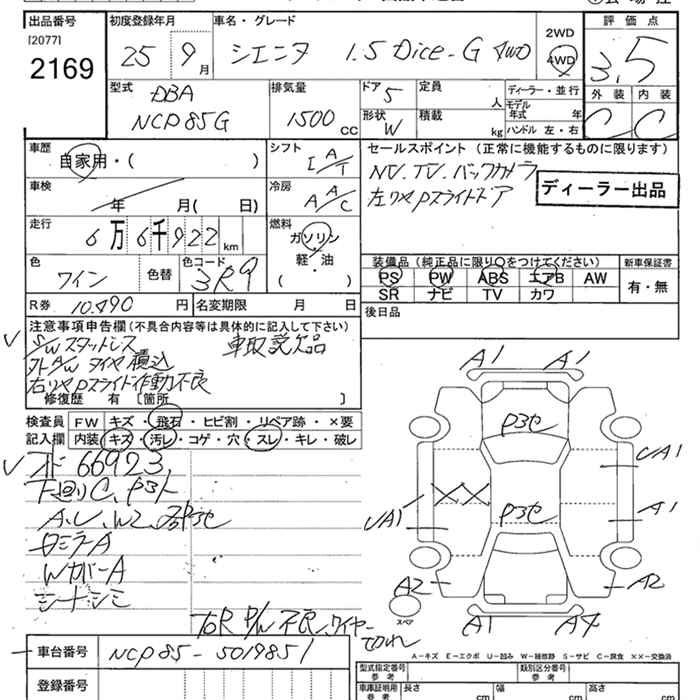 出品番号
[2077]
2169
初度登録年月
25 9月
車名・グレード
シエンタ 1.5 Dice-G 4WD
2WD
4WD
評価点
3.5
外装 内装
C C
型式
DBA
NCP85G
排気量
1500cc
ドア 5
形状 W
定員 人
積載 kg
ディーラー・並行
モデル年式 年
ハンドル 左・右
車歴
自家用・( )
シフト
I A/T
セールスポイント (正常に機能するものに限ります)
NV.TV.バックカメラ
左リヤPスライドドア
ディーラー出品
車検
年 月( 日)
冷房
A A/C
走行
6万6千922km
燃料
ガソリン
軽・油
( )
色
ワイン
色替
色コード
3R9
装備品(純正品に限り○をつけてください)
PS PW ABS エアB AW
SR ナビ TV カワ
新車保証書
有・無
R券 10.490円
名変期限 月 日
後日品
注意事項申告欄(不具合内容等は具体的に記入して下さい)
S/Wスタッドレス 車取説欠品
外A/Wタイヤ積込
右リヤPスライド作動不良
修復歴 有 [箇所 ]
検査員記入欄
FW キズ・飛石・ヒビ割・リペア跡・×要
内装 キズ・汚レ・コゲ・穴・スレ・キレ・破レ
66923
下廻りC、P3ト
A.U.W2.
ミラーA
WカバーA
シートシミ
ToR P/W不良、ワイヤー
A1 A1
P3セ
UA1
XX
P3セ
UA1
A1
A2 A2
スペア
A1 A4
A-キズ E-エクボ U-凹み W-補修跡 S-サビ C-腐食 ××-交換済
車台番号 NCP85-5019851
登録番号
型式指定番号 参考
類別区分番号 参考
車庫証明用 参考
長さ cm
幅 cm
高さ cm